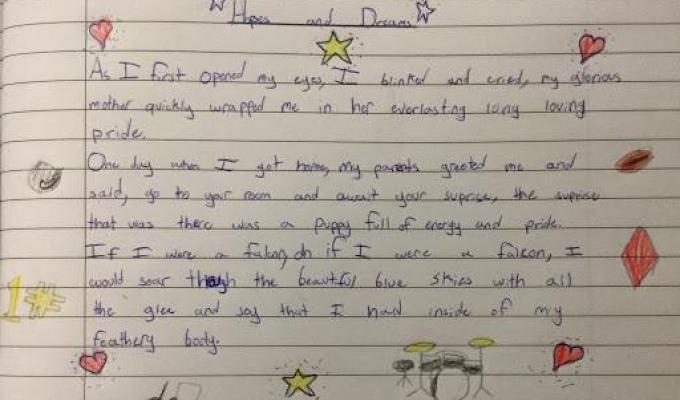 Hopes and Dreams
As I first opened my eyes, I blinked and cried, my glorious
mother quickly wrapped me in her everlasting long loving
pride.
One day when I got home, my parents greeted me and
said, go to your room and await your suprise, the suprise
that was there was a puppy full of energy and pride.
If I were a falcon, oh if I were a falcon, I
would soar though the beautiful blue skies with all
the glee and joy that I had inside of my
feathery body.
1#